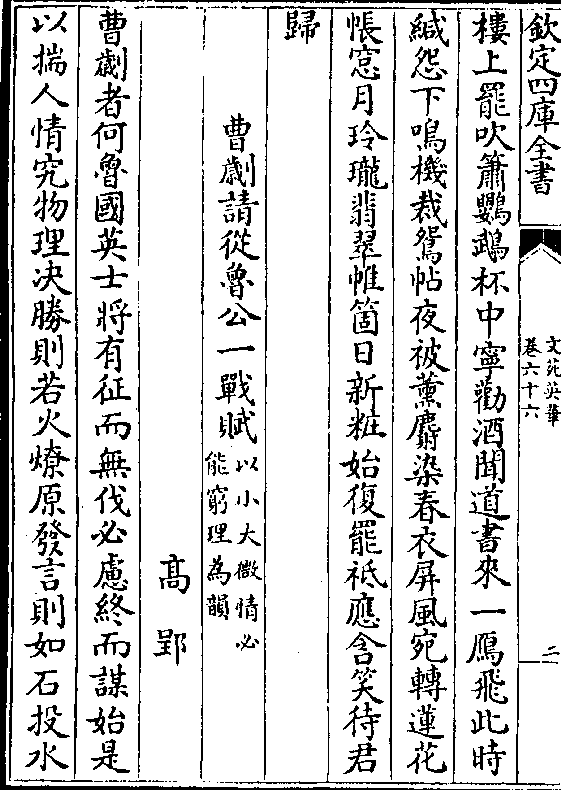 欽定四庫全書
文苑英華
卷六十六
二
樓上罷吹簫鸚鵡杯中寧勸酒聞道書來一鴈飛此時
緘怨下鳴機裁鴛帖夜被薰麝染春衣屏風宛轉蓮花
帳窓月玲瓏翡翠帷箇日新粧始復罷祗應含笑待君
歸
曹劌請從魯公一戰賦
以小大微情必
能窮理為韻
高郢
曹劌者何魯國英士將有征而無伐必慮終而謀始是
以揣人情究物理决勝則若火燎原發言則如石投水